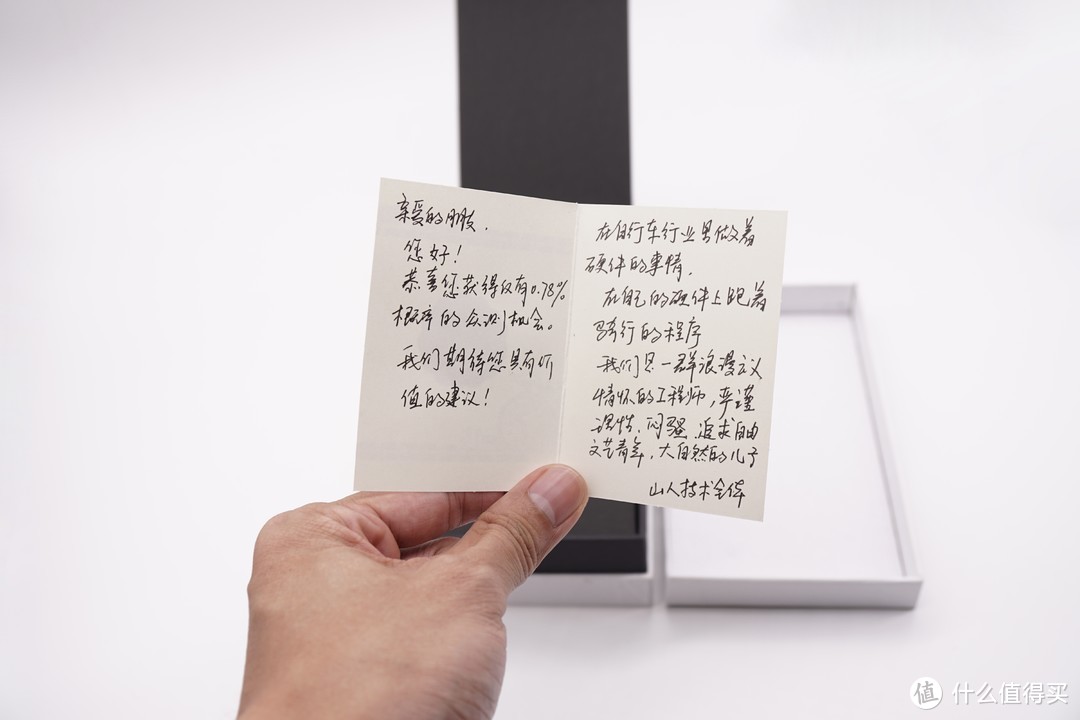 亲爱的朋友,
您好!
恭喜您获得仅有0.78%
概率的众测机会。
我们期待您具有价
值的建议!
在自行车行业里做着
硬件的事情,
在自己的硬件上跑着
骑行的程序
我们是一群浪漫主义
情怀的工程师,严谨
理性、闷骚、追求自由
文艺青年,大自然的儿子
山人技术全体
值 什么值得买